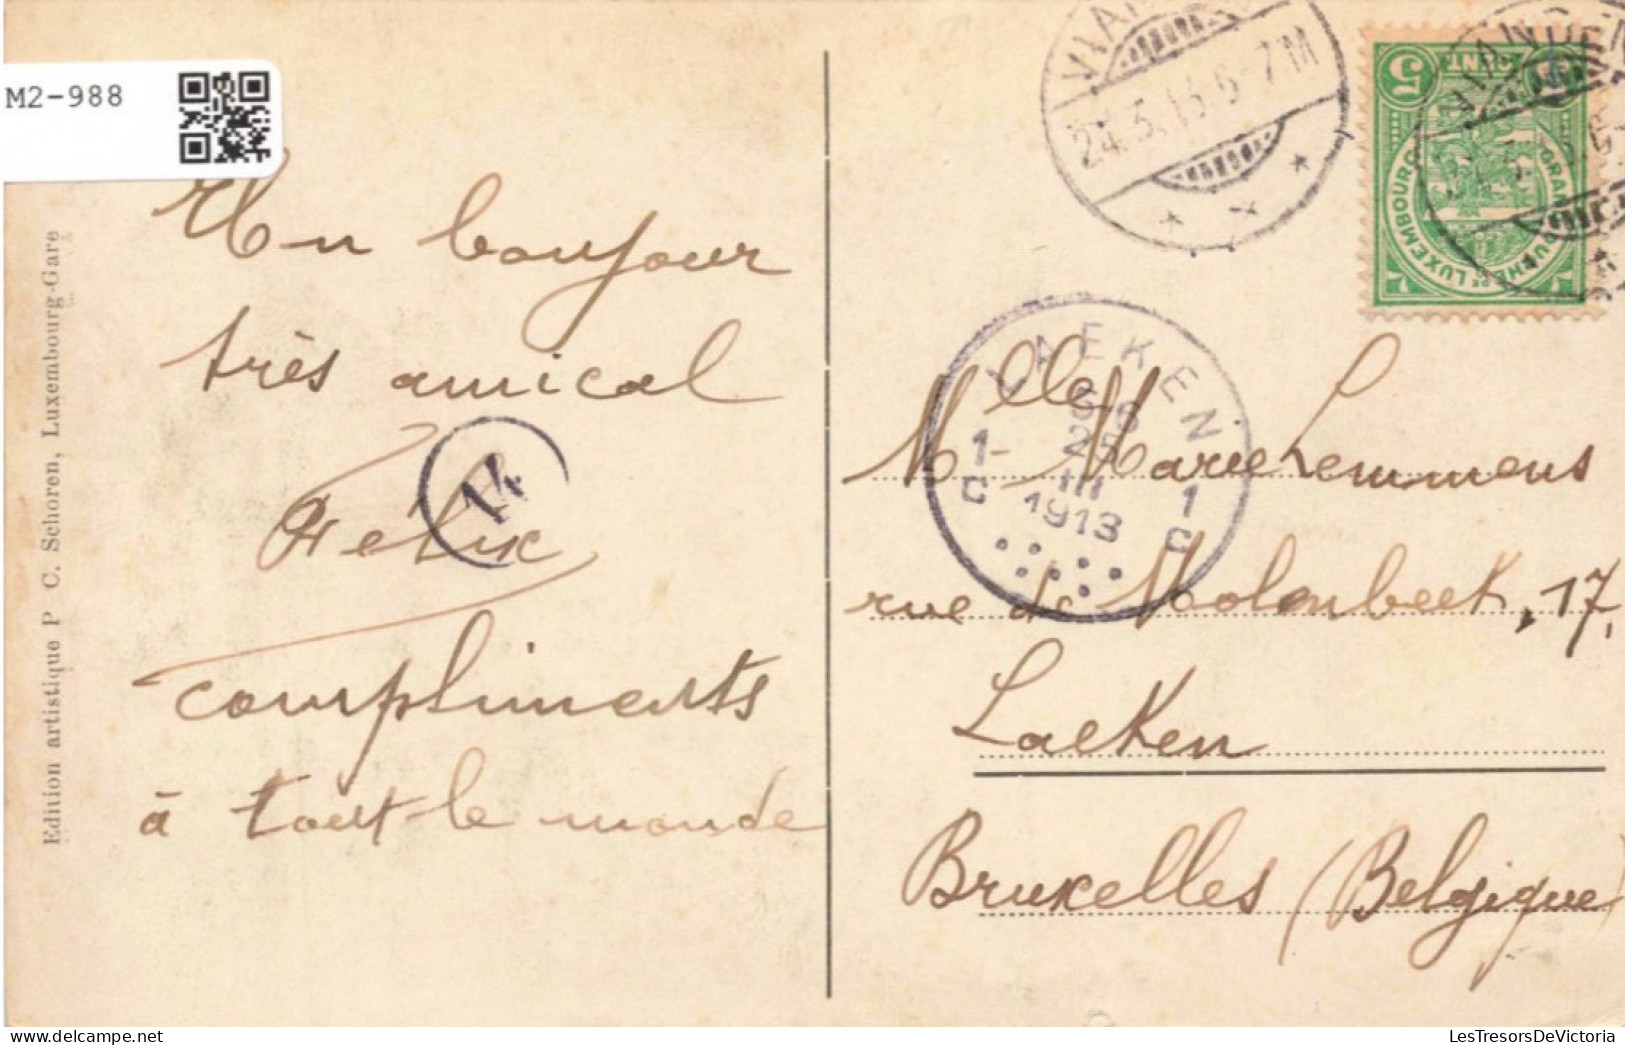 M2-988
Edition artistique P C. Schoren, Luxembourg-Gare
Un bonjour
très amical
Felix
compliments
à tout le monde
14
24.3.13.6-7M
VIANDEN
5 CENT 5
GRAND DUCHÉ DE LUXEMBOURG
LAEKEN
1- 25 1
C III C
1913
Mlle Marie Lemmens
rue de Molenbeek, 17,
Laeken
Bruxelles (Belgique
LesTresorsDeVictoria.com
LesTresorsDeVictoria